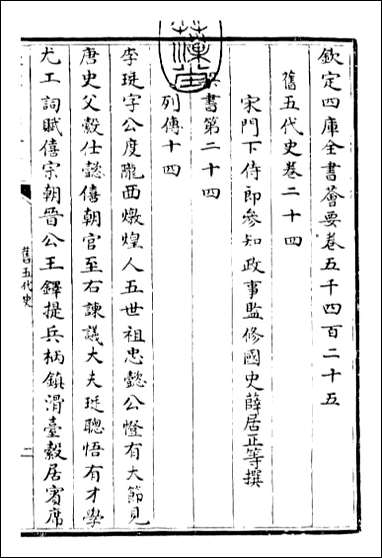 欽定四庫全書薈要卷五千四百二十五
舊五代史卷二十四
宋門下侍郎參知政事監修國史薛居正等撰
書第二十四
列傳十四
李珽字公度隴西燉煌人五世祖忠懿公憕有大節見
唐史父縠仕懿僖朝官至右諫議大夫珽聰悟有才學
尤工詞賦僖宗朝晉公王鐸提兵柄鎮渭臺縠居賓席
舊五代史